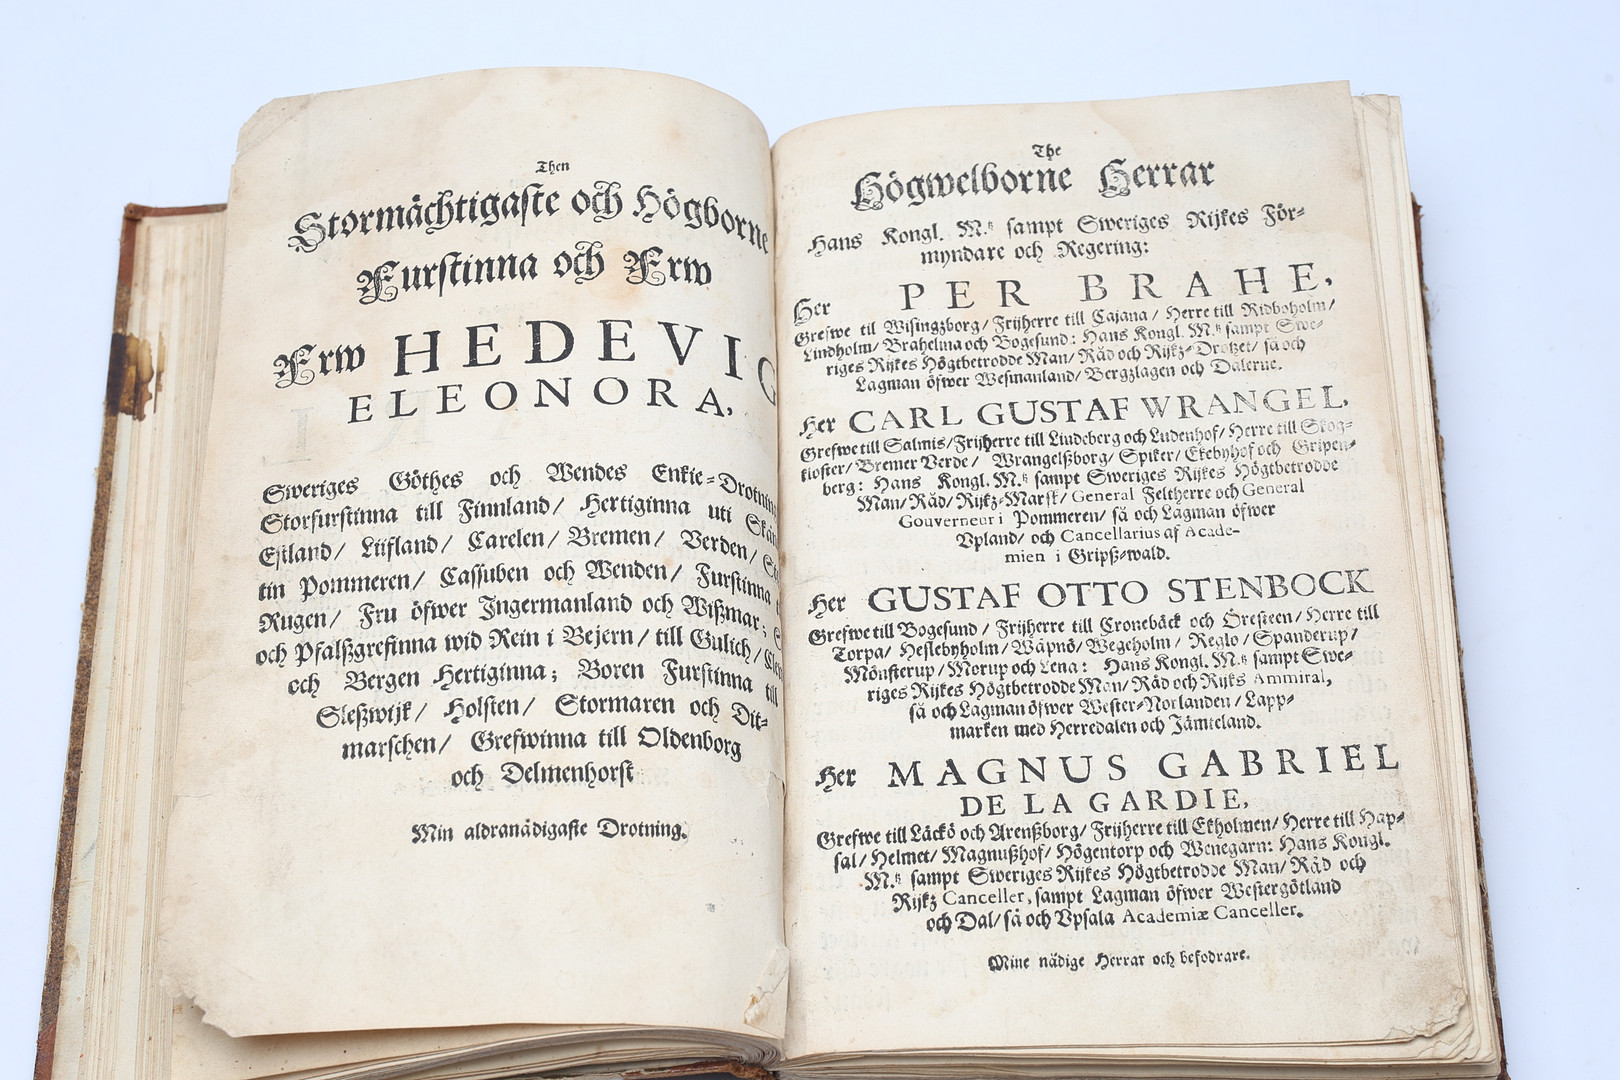 Then
Stormächtigaste och Högborne
Furstinna och Frw
Frw HEDEVIG
ELEONORA,
Sweriges Göthes och Wendes Enkie-Drotning
Storfurstinna till Finnland/ Hertiginna uti
Estland/ Liifland/ Carelen/ Bremen/ Verden/
tin Pommeren/ Cassuben och Wenden/ Furstinna
Rugen/ Fru öfwer Ingermanland och Wißmar;
och Pfalßgrefinna wid Rein i Bejern/ till Gulich/
och Bergen Hertiginna; Boren Furstinna till
Sleßwijk/ Holsten/ Stormaren och Dit-
marschen/ Grefwinna till Oldenborg
och Delmenhorst
Min aldranädigaste Drotning.
The
Högwelborne Herrar
Hans Kongl. M.tz sampt Sweriges Rijkes För-
myndare och Regering:
Her PER BRAHE,
Grefwe til Wisingzborg/ Frijherre till Cajana/ Herre till Ridboholm/
Lindholm/ Brahelina och Bogesund: Hans Kongl. M.tz sampt Swe-
riges Rijkes Högtbetrodde Man/ Råd och Rijkz-Drotzet/ så och
Lagman öfwer Wesmanland/ Bergzlagen och Dalerne.
Her CARL GUSTAF WRANGEL,
Grefwe till Salmis/ Frijherre till Lindeberg och Ludenhof/ Herre till Skog-
kloster/ Bremer Verde/ Wrangelßborg/ Spiker/ Ekebyhof och Gripen-
berg: Hans Kongl. M.tz sampt Sweriges Rijkes Högtbetrodde
Man/ Råd/ Rijkz-Marsk/ General Feltherre och General
Gouverneur i Pommeren/ så och Lagman öfwer
Vpland/ och Cancellarius af Acade-
mien i Gripß-wald.
Her GUSTAF OTTO STENBOCK
Grefwe till Bogesund/ Frijherre till Cronebäck och Öresteen/ Herre till
Torpa/ Heslebyholm/ Wäpnö/ Wegeholm/ Reglo/ Spanderup/
Mönsterup/ Morup och Lena: Hans Kongl. M.tz sampt Swe-
riges Rijkes Högtbetrodde Man/ Råd och Rijks Ammiral,
så och Lagman öfwer Wester-Norlanden/ Lapp-
marken med Herredalen och Jämteland.
Her MAGNUS GABRIEL
DE LA GARDIE,
Grefwe till Läckö och Arenßborg/ Frijherre till Ekholmen/ Herre till Hap-
sal/ Helmet/ Magnußhof/ Högentorp och Wenegarn: Hans Kongl.
M.tz sampt Sweriges Rijkes Högtbetrodde Man/ Råd och
Rijkz Canceller, sampt Lagman öfwer Westergötland
och Dal/ så och Vpsala Academiæ Canceller.
Mine nädige Herrar och befodrare.